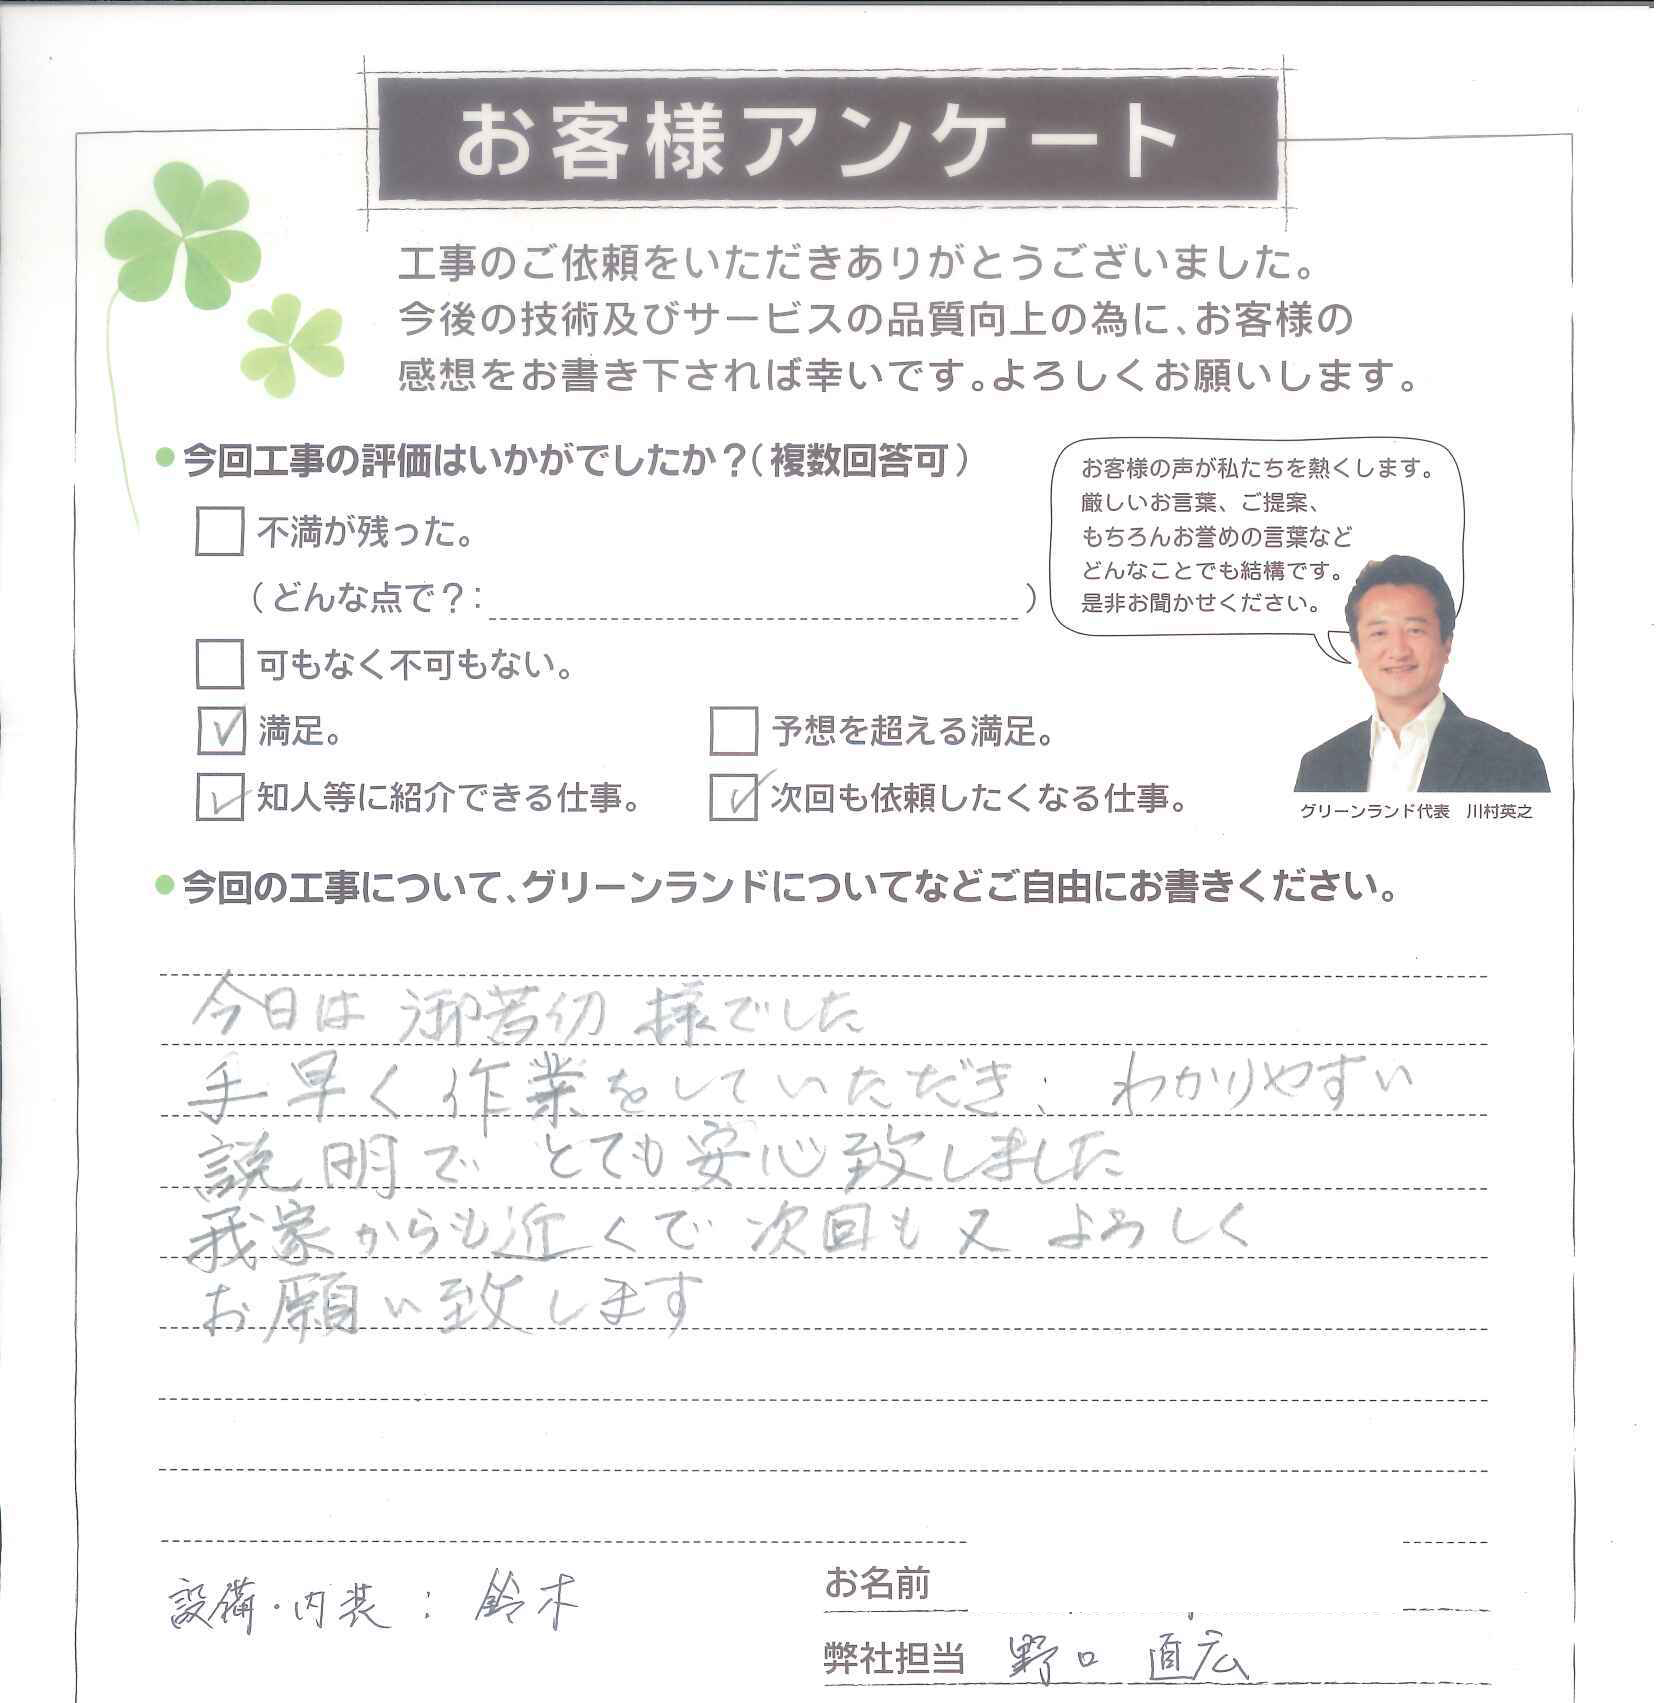 お客様アンケート
工事のご依頼をいただきありがとうございました。
今後の技術及びサービスの品質向上の為に、お客様の
感想をお書き下されば幸いです。よろしくお願いします。
今回工事の評価はいかがでしたか?(複数回答可)
不満が残った。
(どんな点で?: )
可もなく不可もない。
満足。
予想を超える満足。
知人等に紹介できる仕事。
次回も依頼したくなる仕事。
お客様の声が私たちを熱くします。
厳しいお言葉、ご提案、
もちろんお誉めの言葉など
どんなことでも結構です。
是非お聞かせください。
グリーンランド代表 川村英之
今回の工事について、グリーンランドについてなどご自由にお書きください。
今日は 御苦労 様でした
手早く作業をしていただき、わかりやすい
説明で とても安心致しました
我家からも近くで 次回も又 よろしく
お願い致します
設備・内装 : 鈴木
お名前
弊社担当 野口 直広